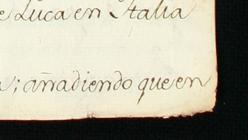 e Luca en Italia
a; añadiendo que en